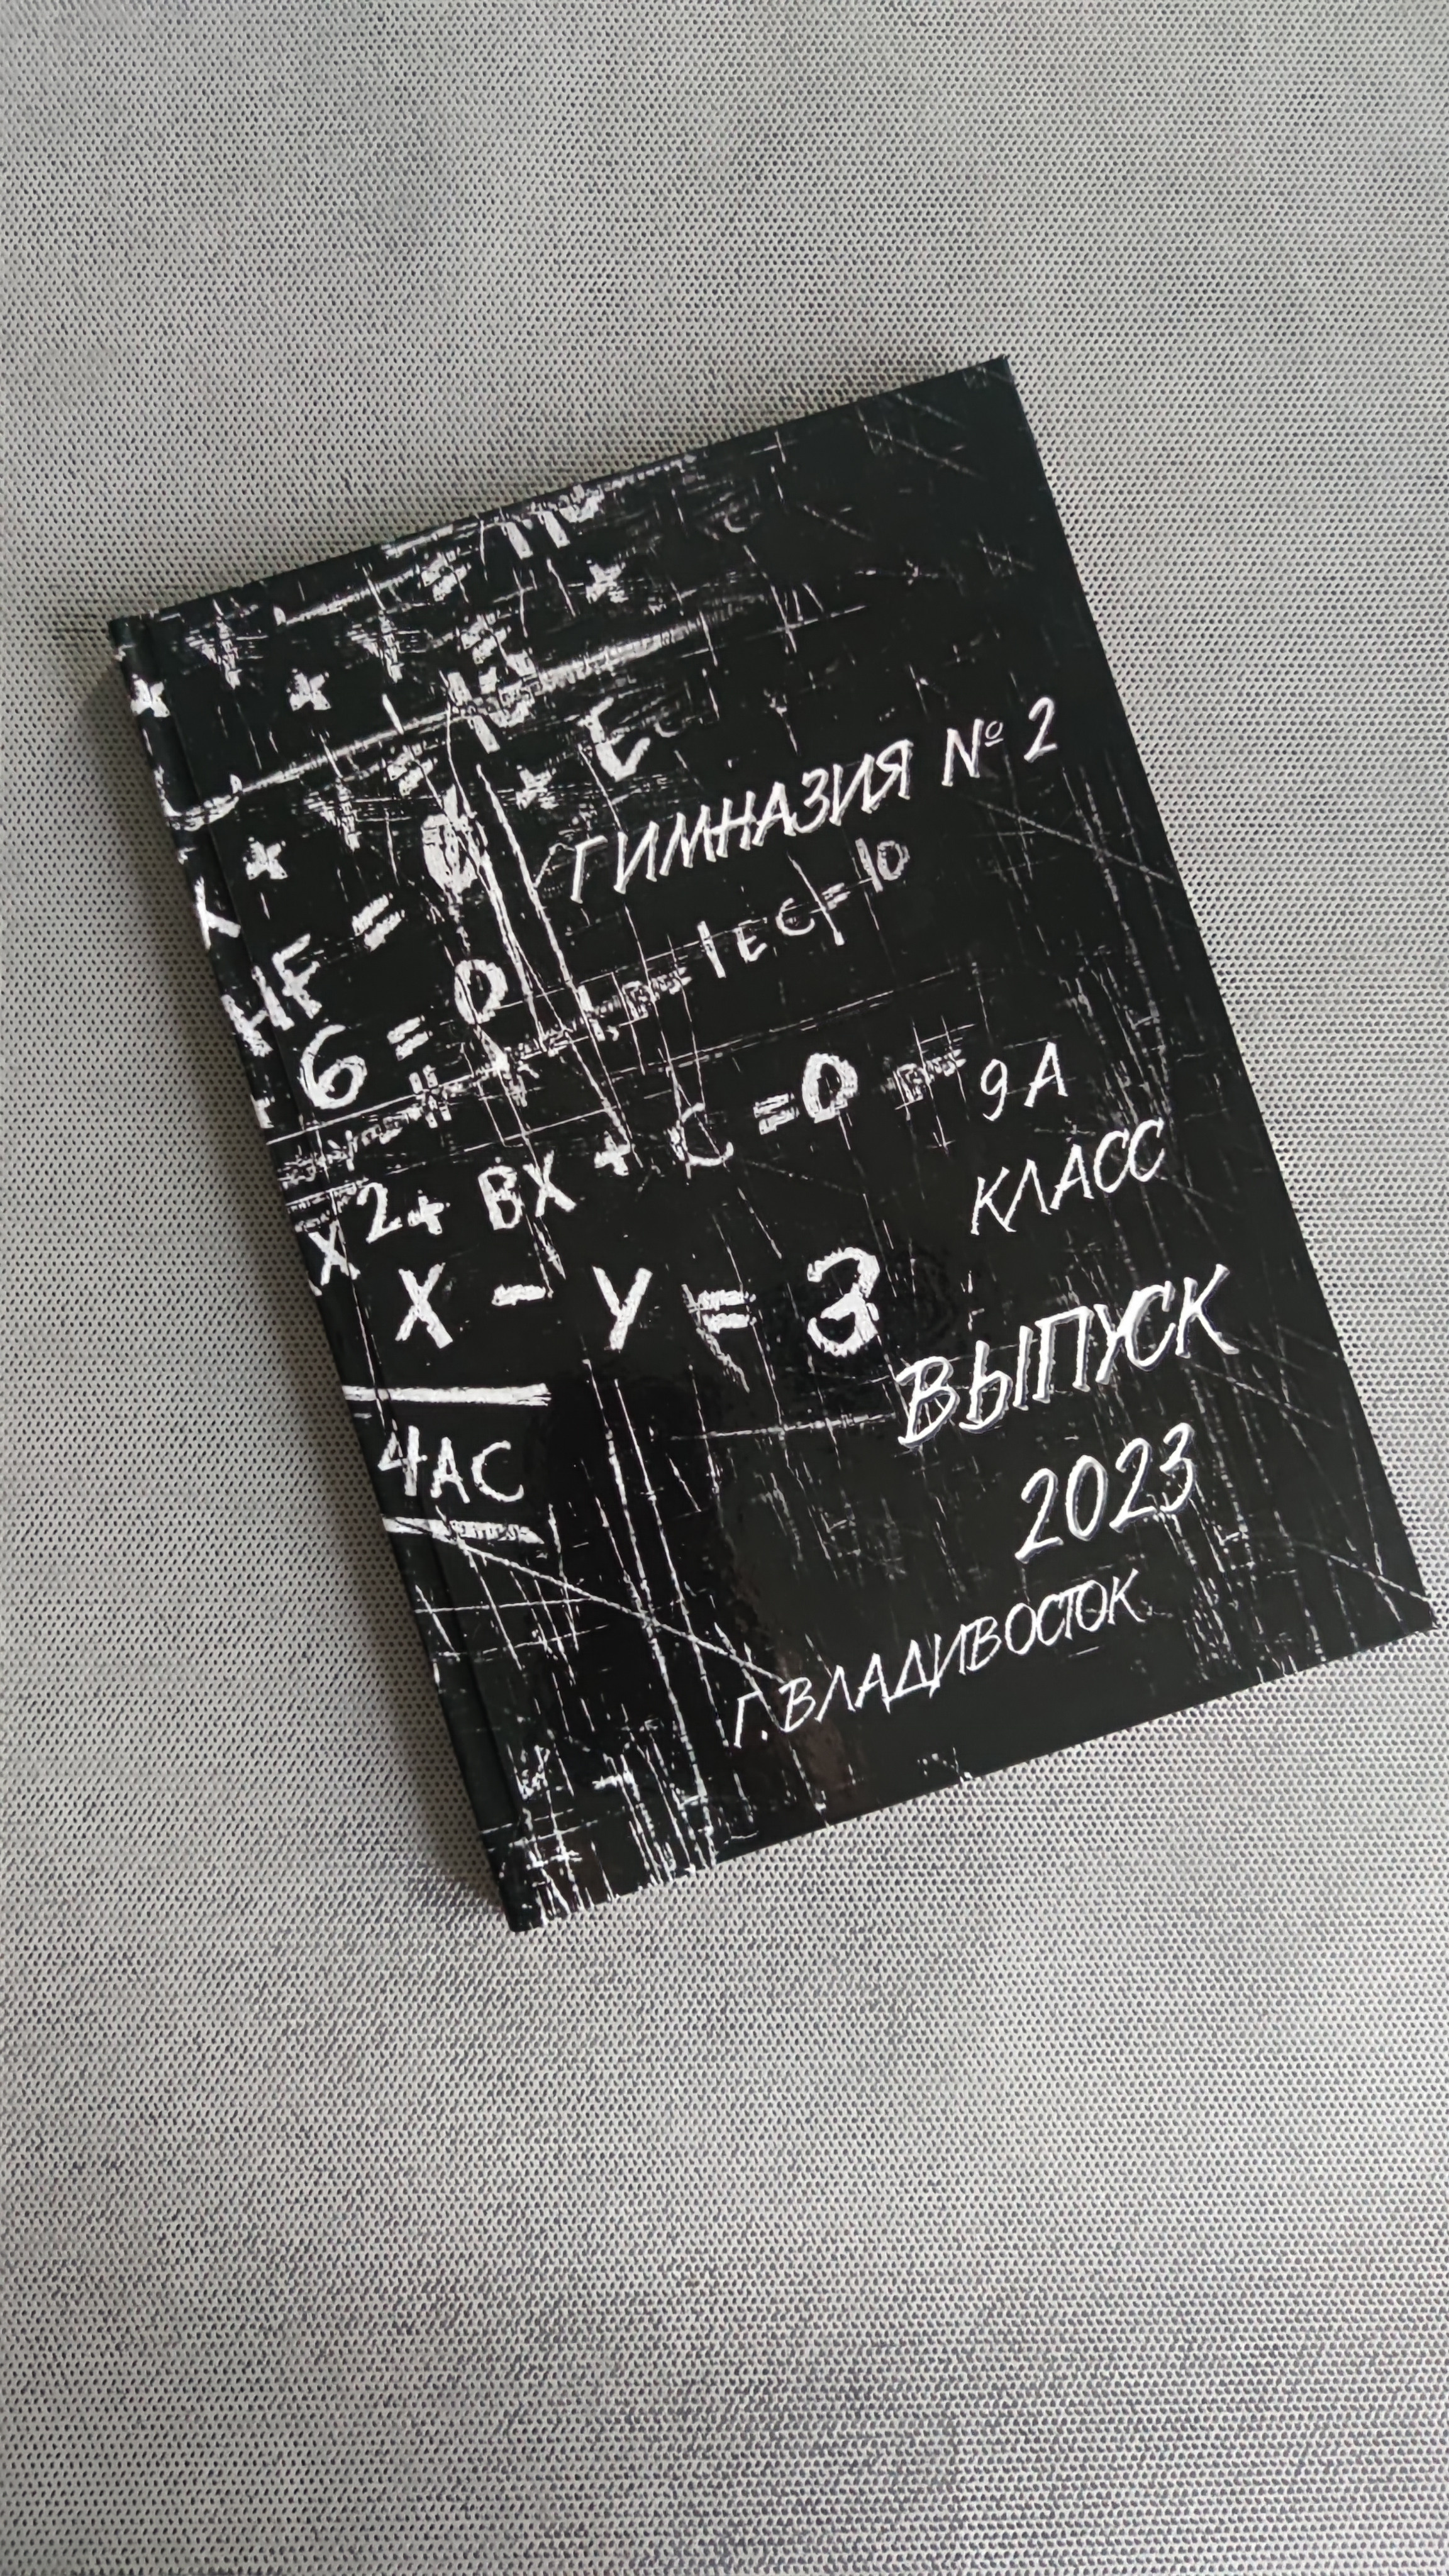 ГИМНАЗИЯ № 2
HF = 0
6 = 0
X² + BX + C = 0
9 А
КЛАСС
X - Y = 3
ВЫПУСК
2023
4AC
Г. ВЛАДИВОСТОК